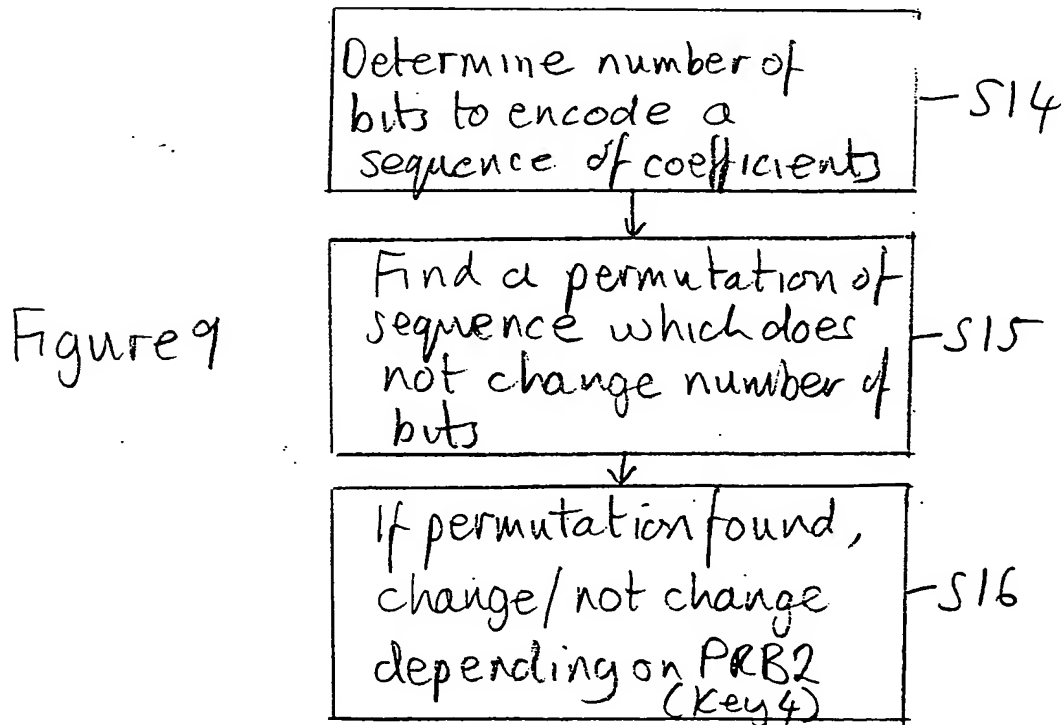 Determine number of
bits to encode a
sequence of coefficients
S14
Find a permutation of
sequence which does
not change number of
bits
S15
Figure 9
If permutation found,
change/not change
depending on PRB2
(Key 4)
S16